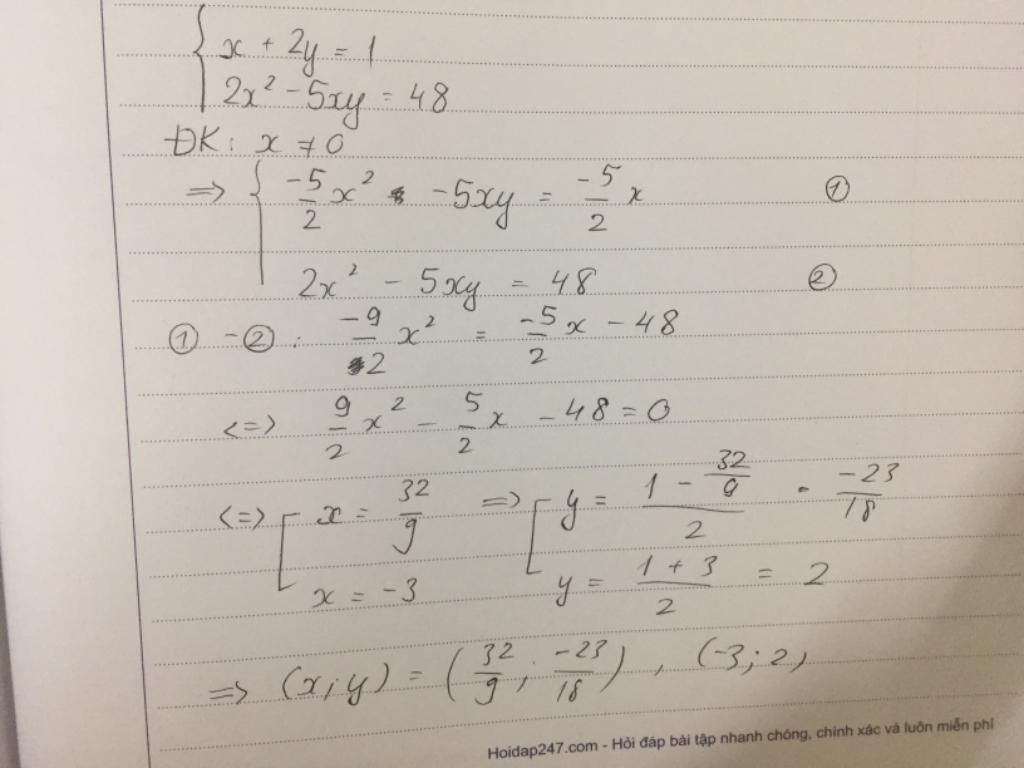 { x + 2y = 1
2x² - 5xy = 48
ĐK: x ≠ 0
=> { -5/2 x² - 5xy = -5/2 x ①
2x² - 5xy = 48 ②
① - ②: -9/2 x² = -5/2 x - 48
<=> 9/2 x² - 5/2 x - 48 = 0
<=> [ x = 32/9 => [ y = (1 - 32/9)/2 = -23/18
x = -3 y = (1 + 3)/2 = 2
=> (x; y) = (32/9; -23/18), (-3; 2)
Hoidap247.com - Hỏi đáp bài tập nhanh chóng, chính xác và luôn miễn phí